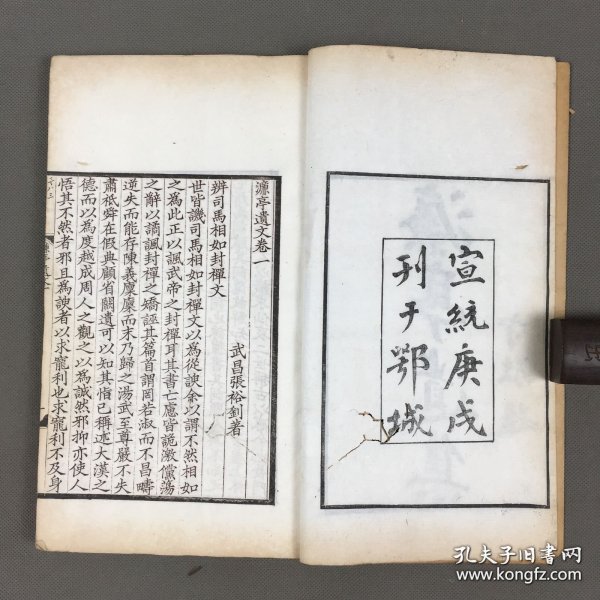 宣統庚戌
刊于鄂城
濂亭遺文卷一
武昌張裕釗著
辨司馬相如封禪文
世皆譏司馬相如封禪文以為從諛余以謂不然相如
之為此正以諷武帝之封禪耳其書亡慮皆詭激儻蕩
之辭以譎諷封禪之矯誣其篇首謂罔若淑而不昌疇
逆失而能存陳義慶廩而末乃歸之湯武至尊嚴不失
肅祗舜在假典顧省闕遺可以知其恉已稱述大漢之
德而以為度越成周人之觀之以為誠然邪抑亦使人
悟其不然者邪且為諛者以求寵利也求寵利不及身
孔夫子旧书网
www.kongfz.com